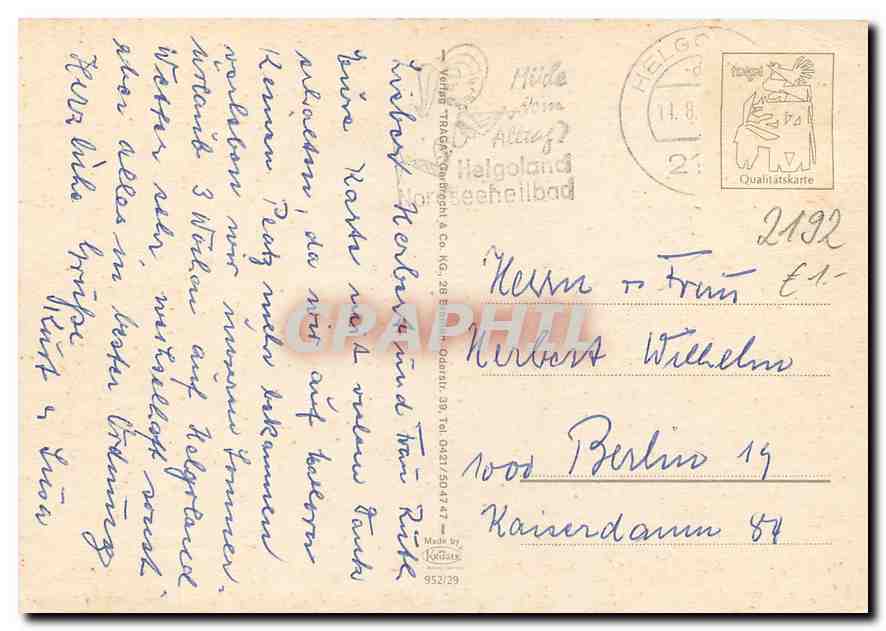 Lieber Herbert und Frau Ruth
Eure Karte mit vielem Dank
erhalten, da wir auf
Keinen Platz mehr bekommen
verleben wir unseren Sommer-
urlaub 3 Wochen auf Helgoland
Wetter sehr wechselhaft sonst
aber alles in bester Ordnung
Herzliche Grüße
Kurt u Luise
Müde
vom
Alltag?
Helgoland
Nordseeheilbad
HELGO
11.8.
21
Qualitätskarte
2192
£ 1.-
Herrn u Frau
Herbert Wilhelm
1000 Berlin 19
Kaiserdamm 84
Verlag "TRAGA" Garbrecht & Co. KG, 28 Bremen, Oderstr. 39, Tel. 0421/504747
Made by
Krüger
952/29
CPAPHIL